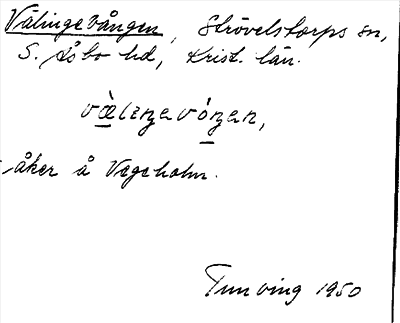 Välingevången, Strövelstorps sn,
S. Åsbo hd, Krist. län.
vὲ̱liŋavóŋan,
åker å Vegeholm.
Tunving 1950